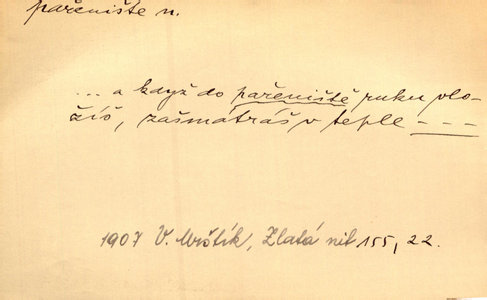 pařeniště n.
... a když do pařeniště ruku vlo-
žíš, zašmatráš v teple - - -
1907 V. Mrštík, Zlatá nit 155, 22.